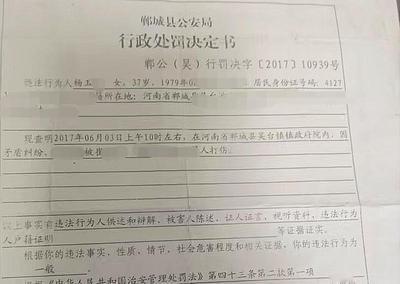 郸城县公安局
行政处罚决定书
郸公（吴）行罚决字〔2017〕10939号
违法行为人杨玉 女，37岁，1979年0 居民身份证号码：4127
居所在地：河南省郸城县
现查明2017年06月03日上午10时左右，在河南省郸城县吴台镇镇政府院内，因
矛盾纠纷， 被崔 人打伤。
以上事实有违法行为人供述和辩解、被害人陈述、证人证言、视听资料、违法行为
人户籍证明 等证据证实。
根据你的违法事实、性质、情节、社会危害程度和相关证据，你的违法行为
为 一般 。
《中华人民共和国治安管理处罚法》第四十三条第二款第一项